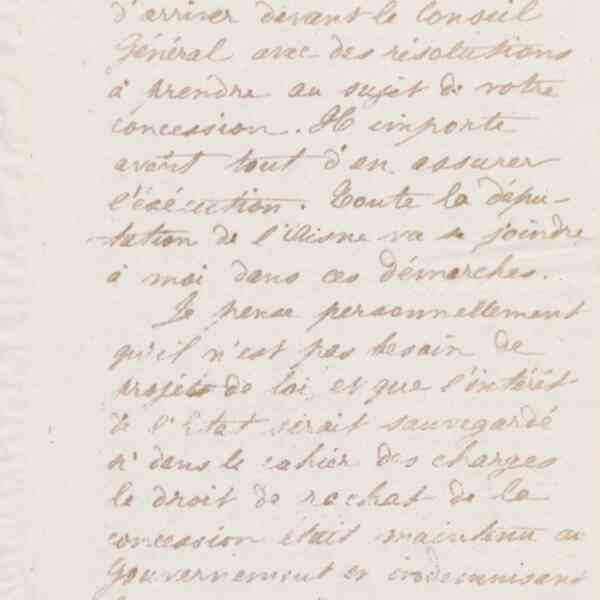 d'arriver devant le Conseil
Général avec des résolutions
à prendre au sujet de votre
concession. Il importe
avant tout d'en assurer
l'exécution. Toute la dépu-
tation de l'Aisne va se joindre
à moi dans ces démarches.
Je pense personnellement
qu'il n'est pas besoin de
projet de loi, et que l'intérêt
de l'Etat serait sauvegardé
si dans le cahier des charges
le droit de rachat de la
concession était maintenu au
Gouvernement en indemnisant